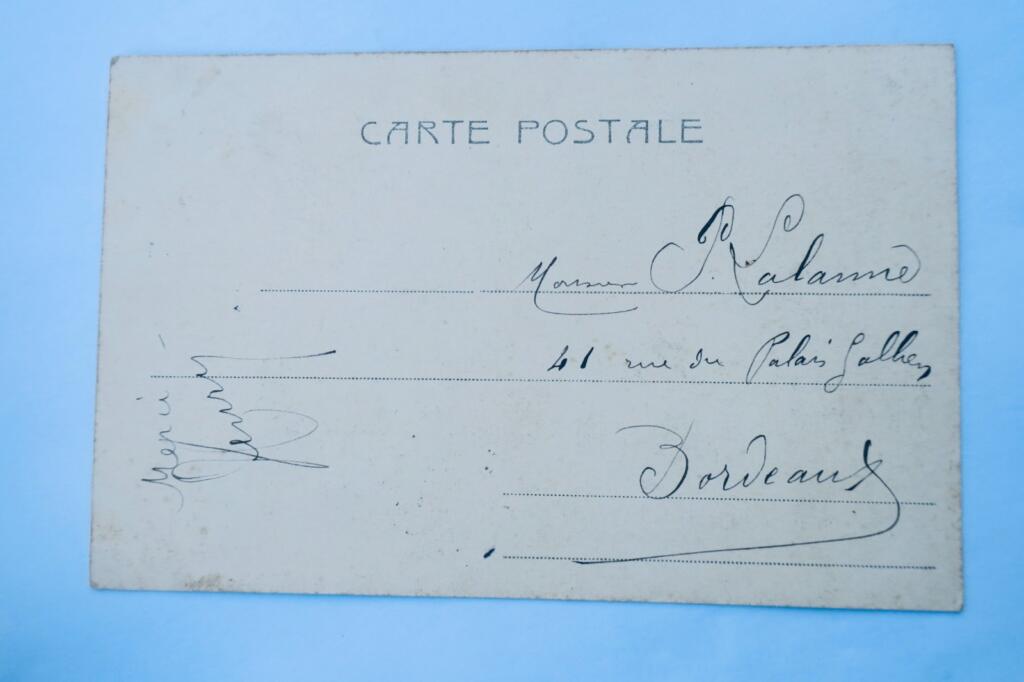 CARTE POSTALE
Monsieur P. Lalanne
41 rue du Palais Gallien
Bordeaux